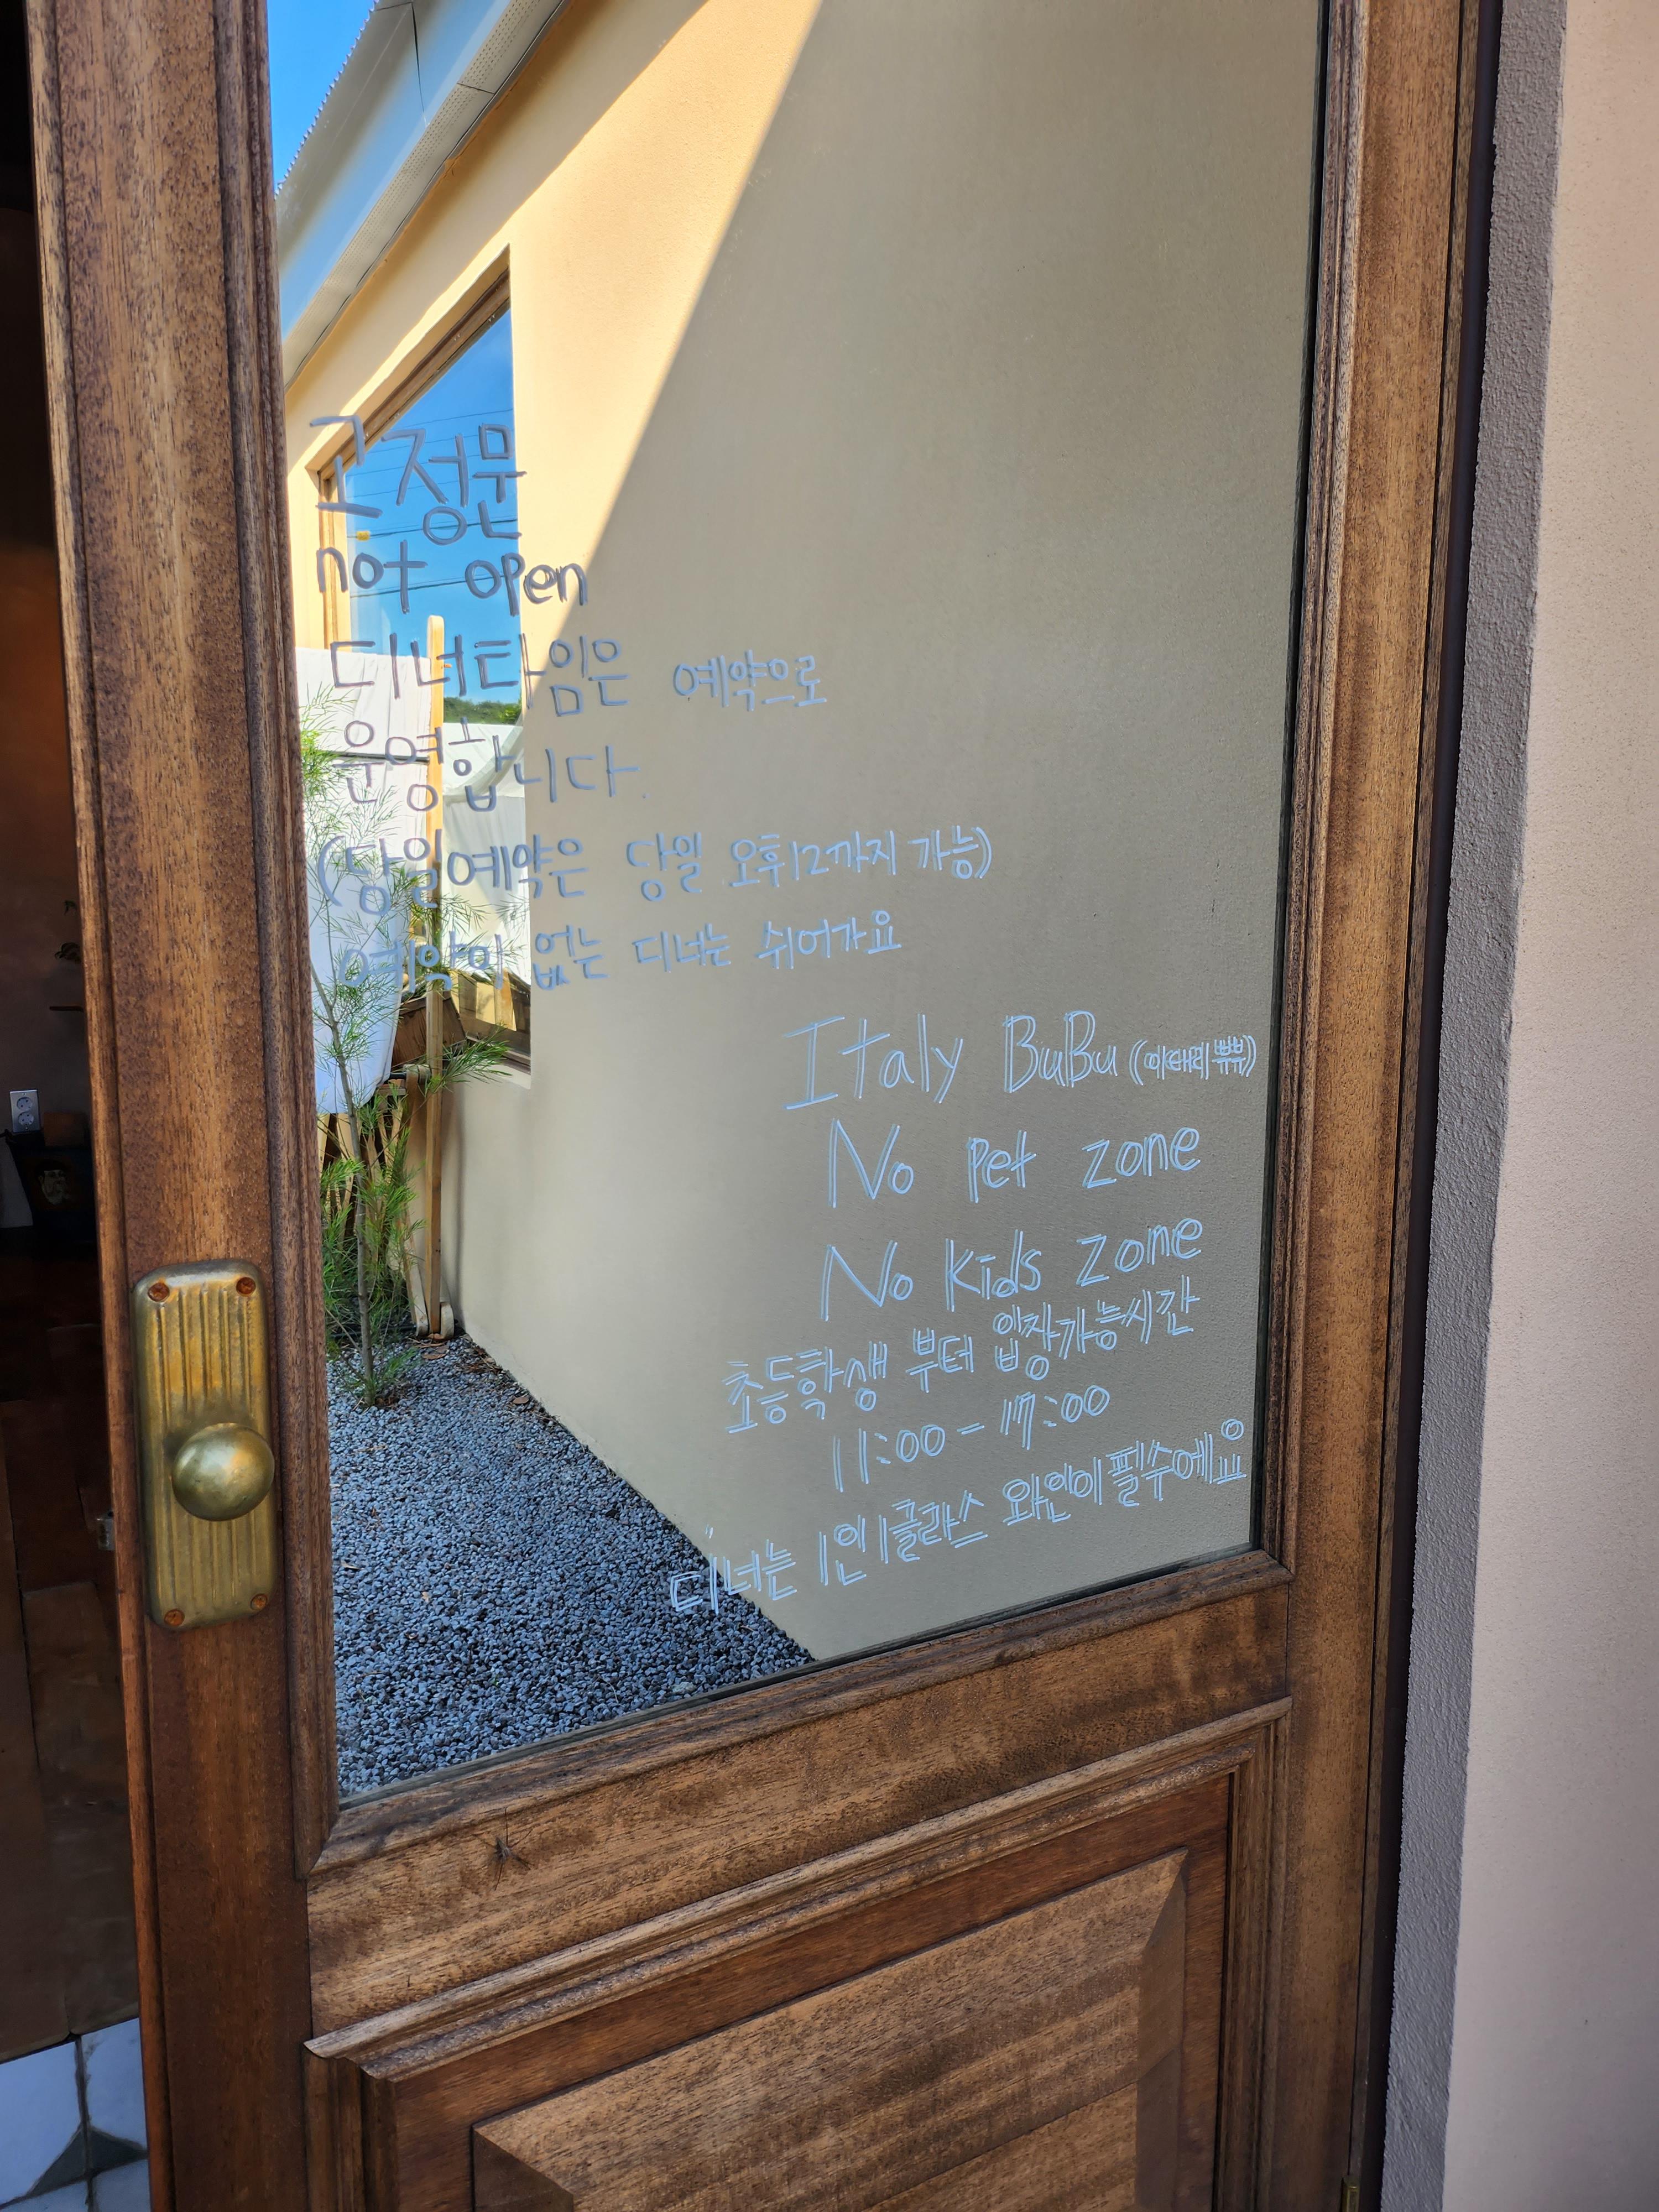 고정문
not open
디너타임은 예약으로
운영합니다.
(당일예약은 당일 오후12까지 가능)
예약이 없는 디너는 쉬어가요
Italy BuBu (이태리 쀼쀼)
No pet zone
No kids zone
초등학생 부터 입장가능시간
11:00 - 17:00
디너는 1인 1글라스 와인이 필수에요